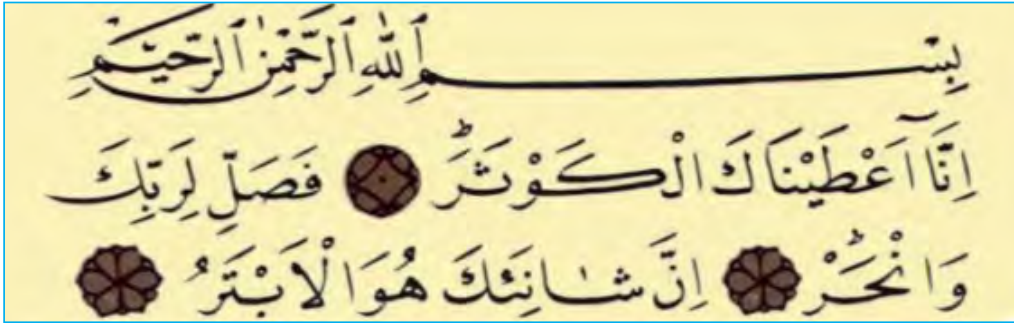 بِسْمِ اللّٰهِ الرَّحْمٰنِ الرَّحِيمِ
اِنَّٓا اَعْطَيْنَاكَ الْكَوْثَرَۜ فَصَلِّ لِرَبِّكَ
وَانْحَرْۜ اِنَّ شَانِئَكَ هُوَ الْاَبْتَرُ